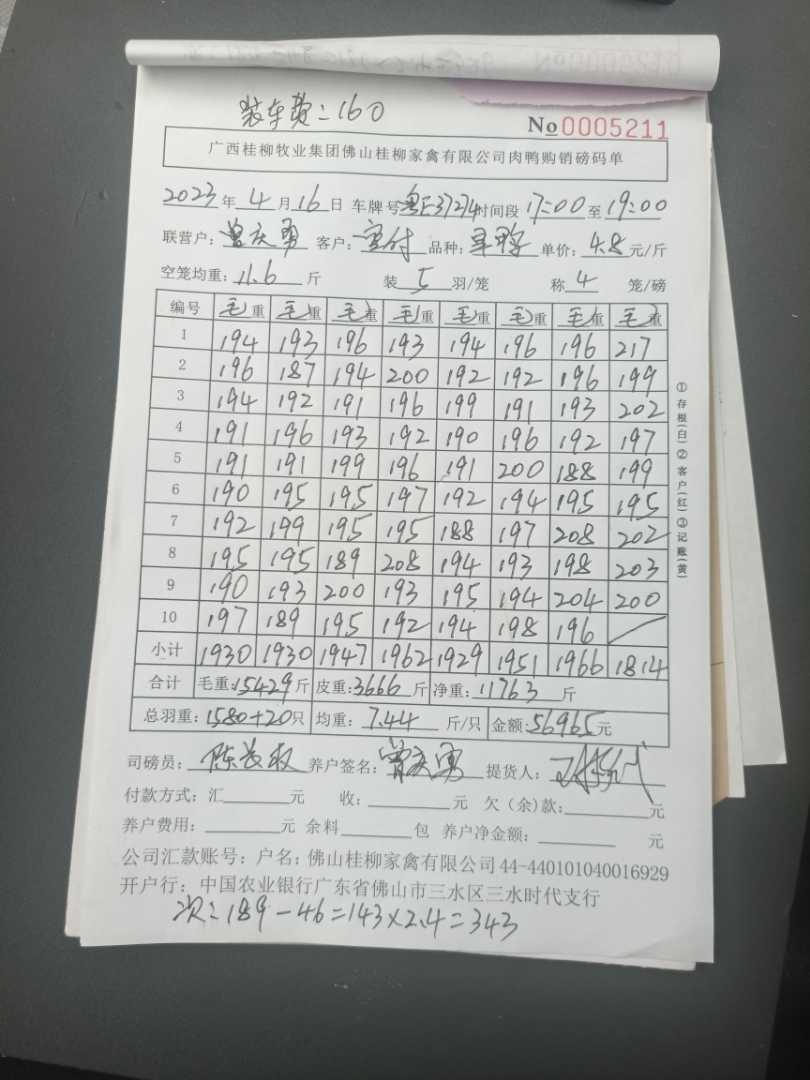 装车费:160
No 0005211
广西桂柳牧业集团佛山桂柳家禽有限公司肉鸭购销磅码单
2023年 4月16日 车牌号粤E37274时间段 17:00至 19:00
联营户:曾庆勇 客户:宝付 品种: 单价:4.8元/斤
空笼均重:11.6斤 装 5 羽/笼 称 4 笼/磅
编号 毛重 毛重 毛重 毛重 毛重 毛重 毛重 毛重
1 194 193 196 193 194 196 196 217
2 196 187 194 200 192 192 196 199
3 194 192 191 196 199 191 193 202
4 191 196 193 192 190 196 192 197
5 191 191 199 196 191 200 188 199
6 190 195 195 197 192 194 195 195
7 192 199 195 195 188 197 208 202
8 195 195 189 208 194 193 198 203
9 190 193 200 193 195 194 204 200
10 197 189 195 192 194 198 196
小计 1930 1930 1947 1962 1929 1951 1966 1814
合计 毛重:15429斤 皮重:3666斤 净重:11763斤
总羽重:1580+20只 均重:7.44斤/只 金额:56965元
①存根(白)②客户(红)③记账(黄)
司磅员: 养户签名:曾庆勇 提货人:
付款方式:汇 元 收: 元 欠(余)款: 元
养户费用: 元 余料 包 养户净金额: 元
公司汇款账号:户名:佛山桂柳家禽有限公司44-440101040016929
开户行:中国农业银行广东省佛山市三水区三水时代支行
次:189-46=143×2.4=343